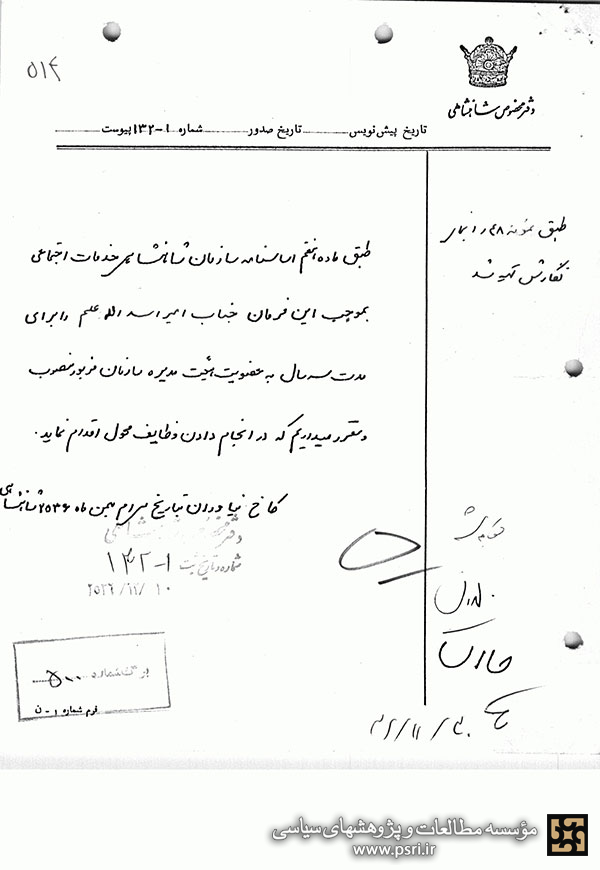 ۵۱۴
دفتر مخصوص شاهنشاهی
تاریخ پیش‌نویس تاریخ صدور شماره ۱-۱۳۲ پیوست
طبق نمونه
نگارش تهیه شد
طبق ماده هفتم اساسنامه سازمان شاهنشاهی خدمات اجتماعی
بموجب این فرمان جناب امیر اسدالله علم را برای
مدت سه سال به عضویت هیئت مدیره سازمان مزبور منصوب
و مقرر میداریم که در انجام دادن وظایف محول اقدام نماید.
کاخ نیاوران بتاریخ سی‌ام بهمن ماه ۲۵۳۶ شاهنشاهی
دفتر مخصوص شاهنشاهی
شماره و تاریخ ثبت ۱-۱۳۲
۲۵۳۶/۱۲/۱۰
برگ شماره ۵۰۰
فرم شماره ۱ - ن
۳۶/۱۱/۳۰
مؤسسه مطالعات و پژوهشهای سیاسی
www.psri.ir